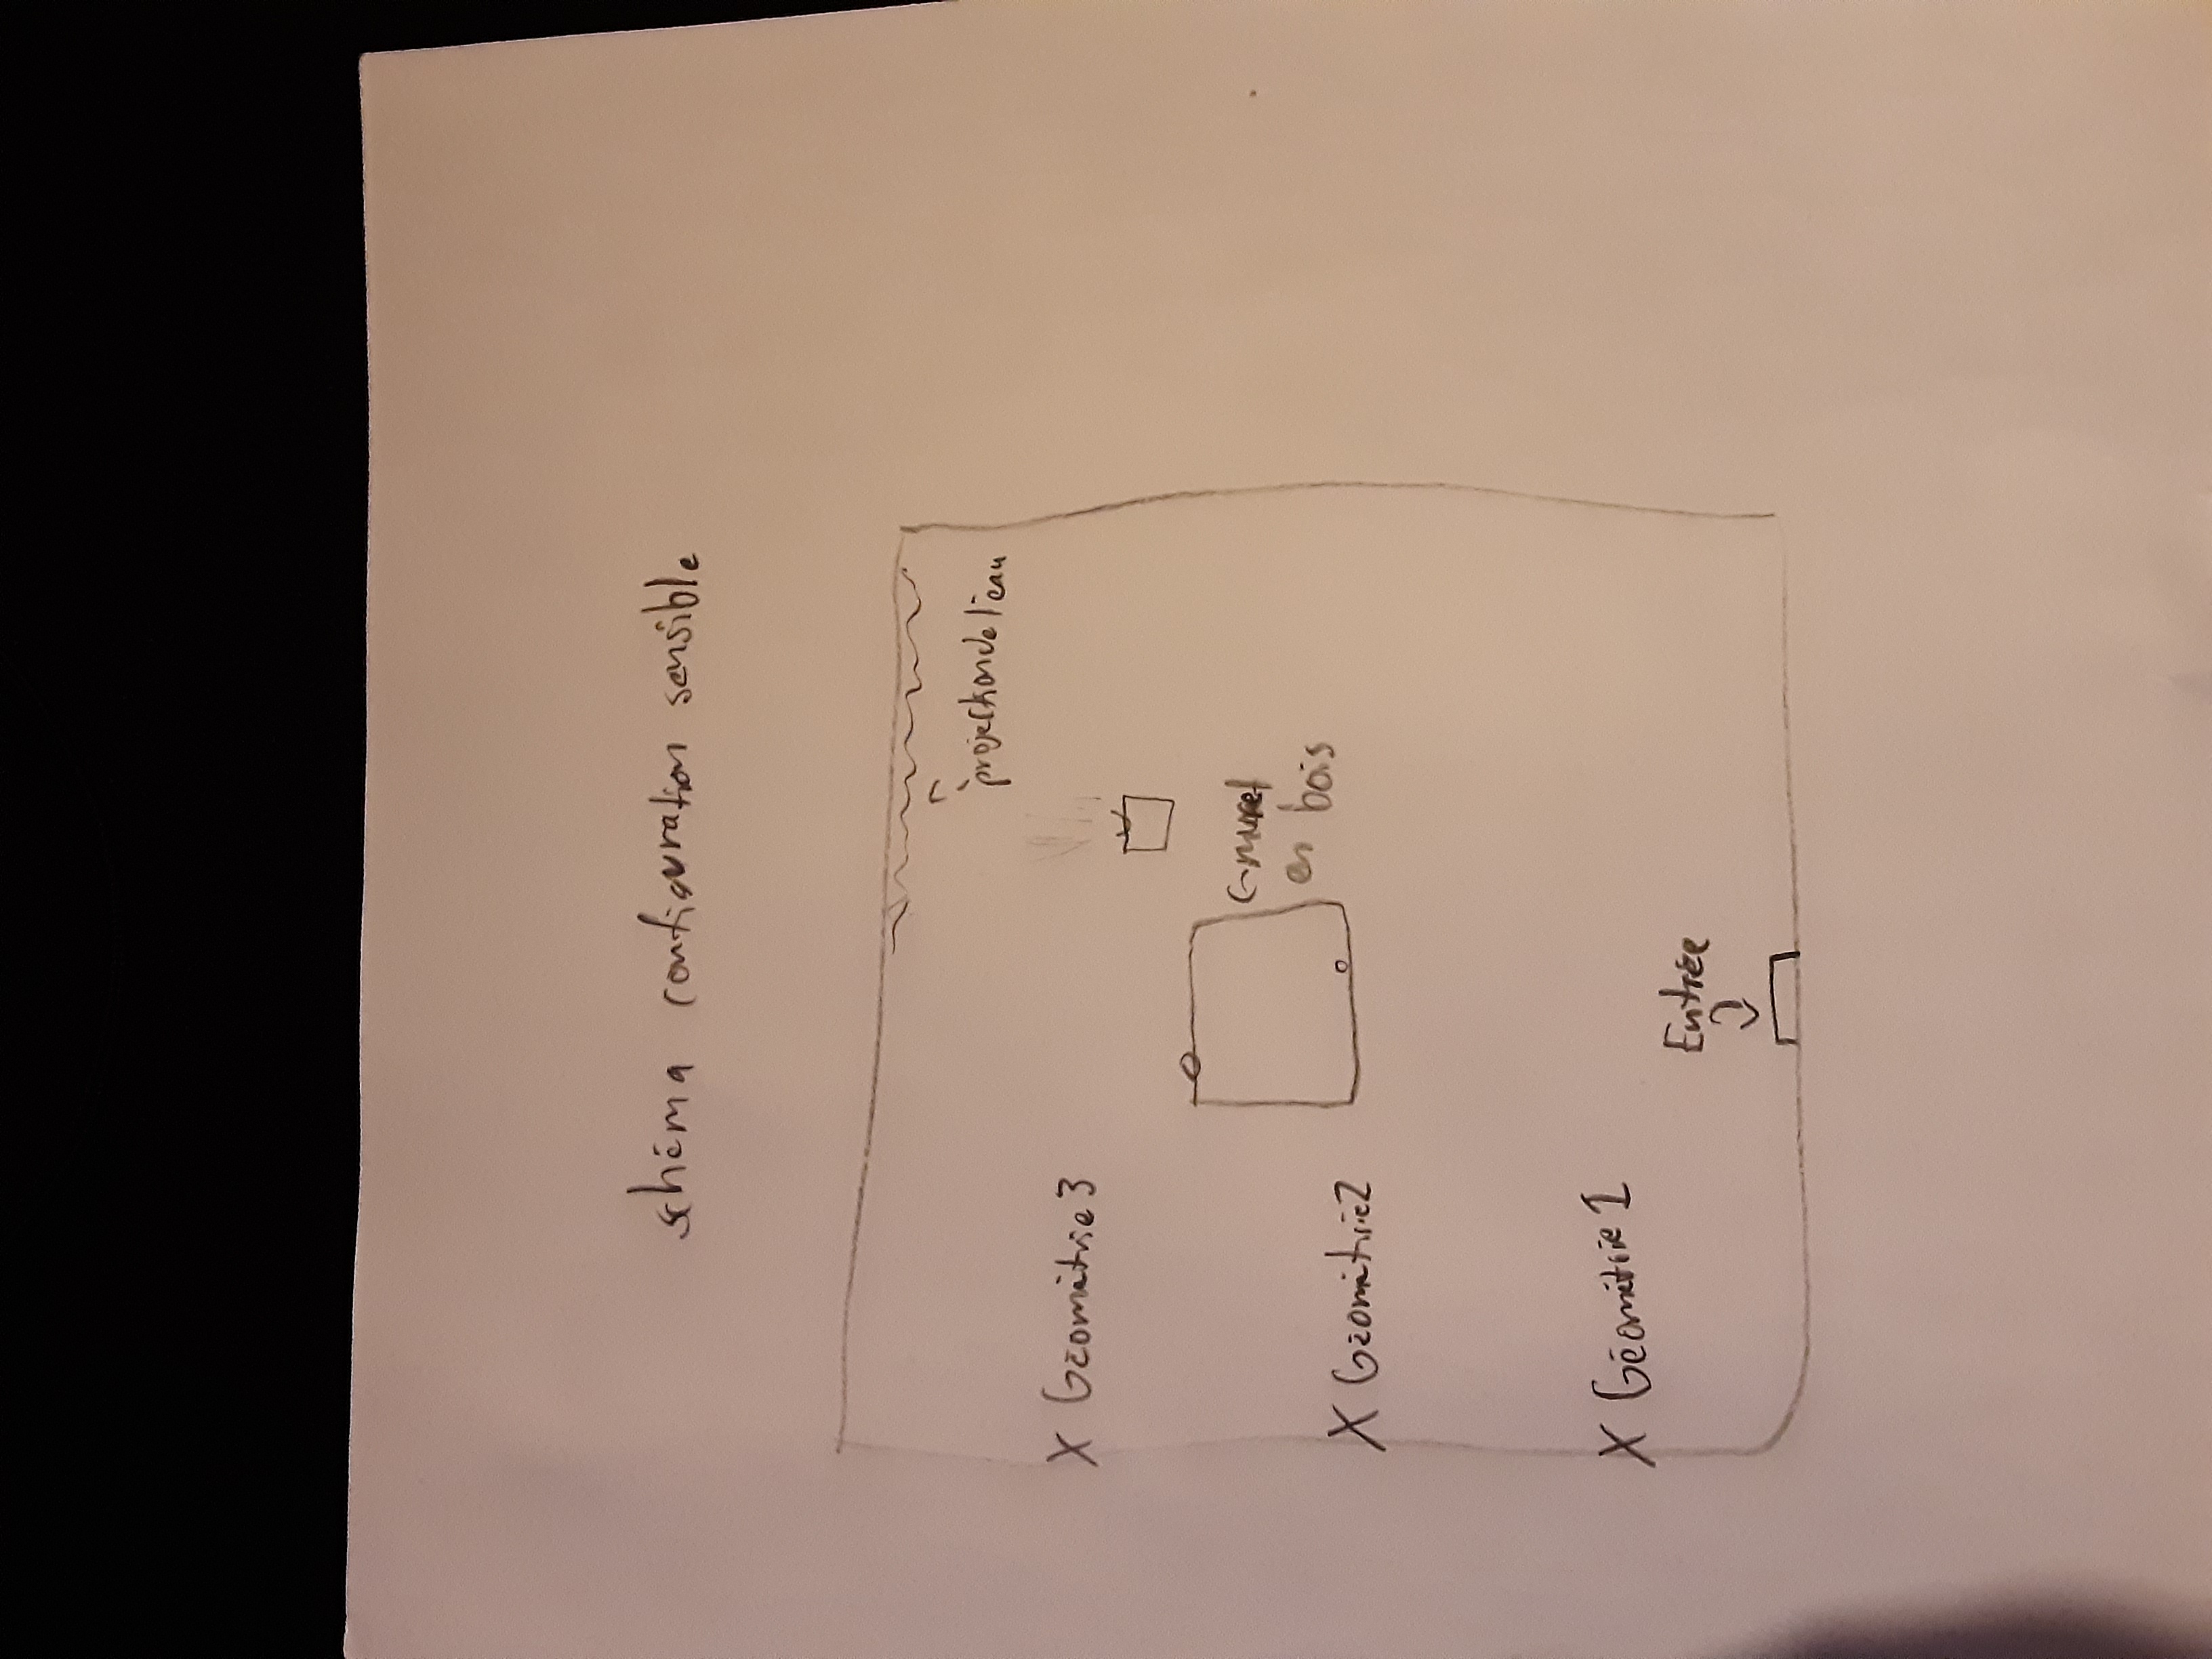 schéma configuration sensible
projection de l'eau
X Géométrie 3
muret
en bois
X Géométrie 2
X Géométrie 1
Entrée